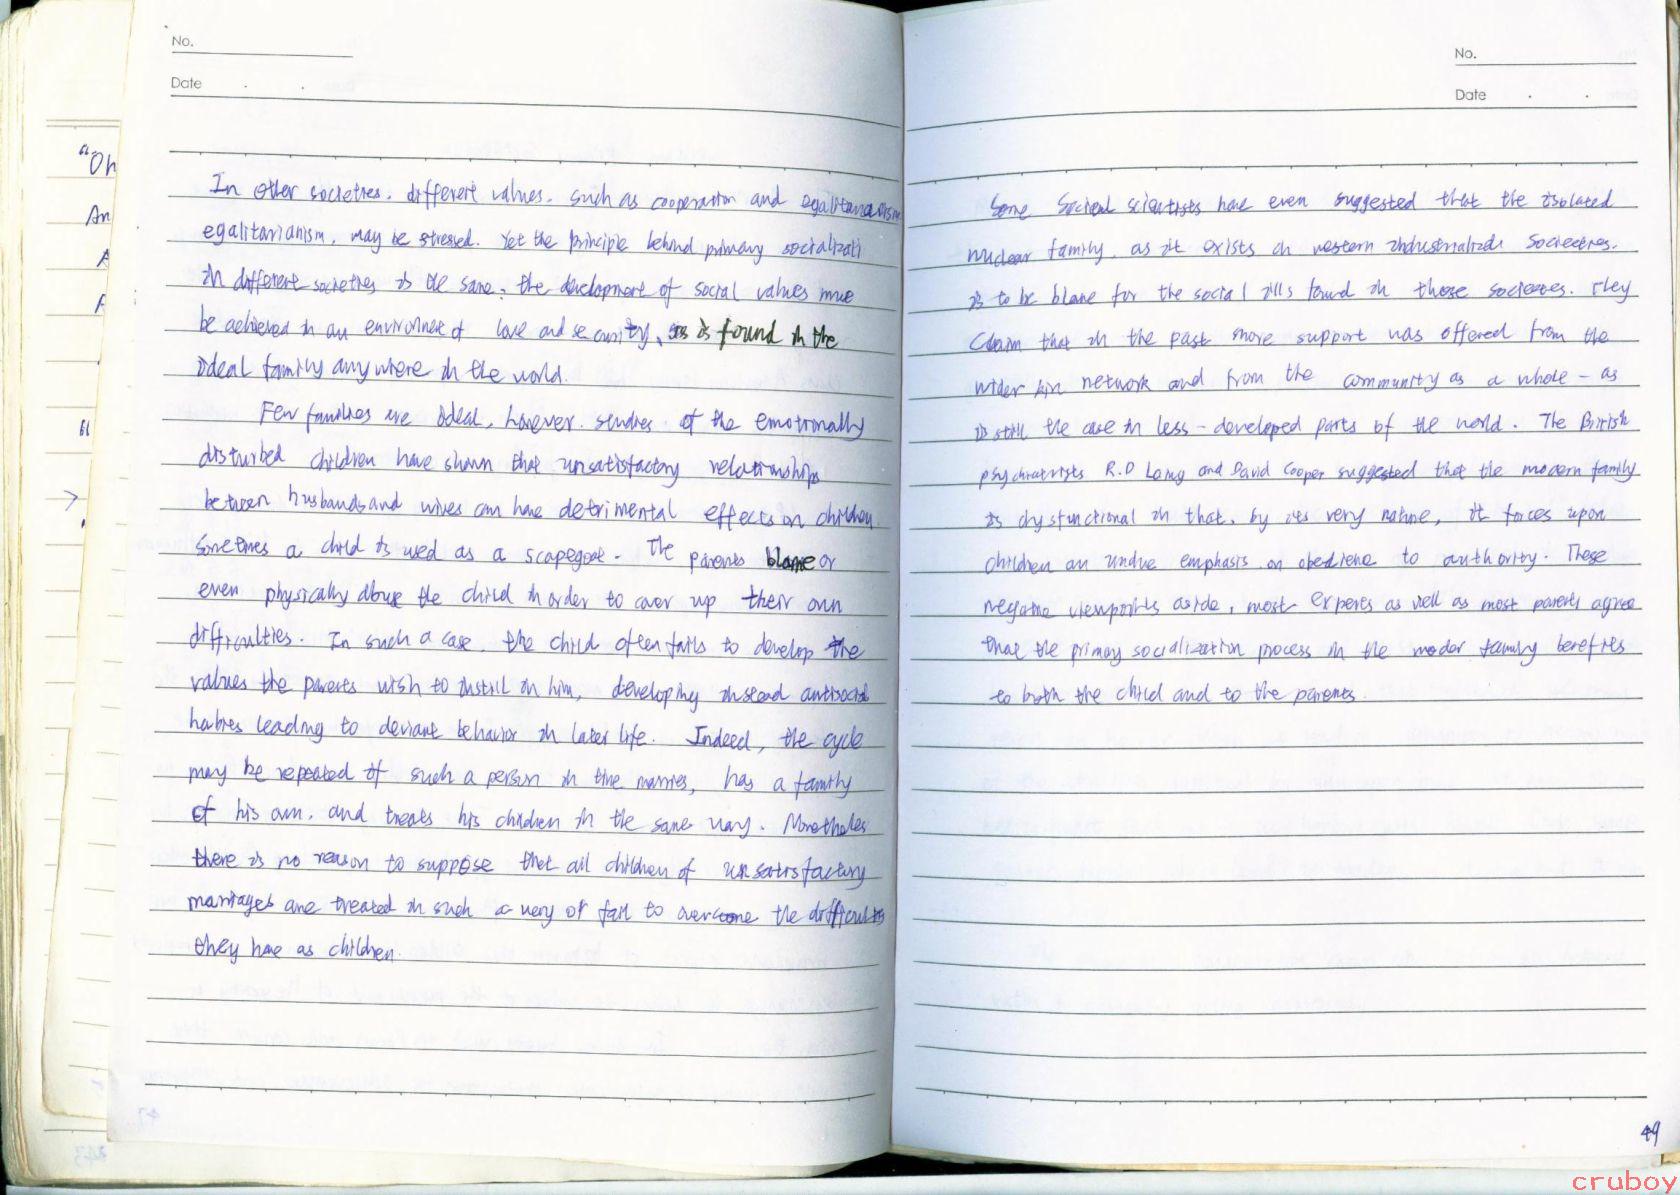 No.
Date
"Oh
An
A
In other societies, different values, such as cooperation and egalitarianism
egalitarianism, may be stressed. Yet the principle behind primary socializati
in different societies is the same: the development of social values mue
be achieved in an environment of love and security, as is found in the
ideal family anywhere in the world.
Few families are ideal, however. studies of the emotionally
disturbed children have shown that unsatisfactory relationships
between husbands and wives can have detrimental effects on children
sometimes a child is used as a scapegoat. The parents blame or
even physically abuse the child in order to cover up their own
difficulties. In such a case, the child often fails to develop the
values the parents wish to instill in him, developing instead antisocial
habits leading to deviant behavior in later life. Indeed, the cycle
may be repeated if such a person in time marries, has a family
of his own, and treats his children in the same way. Nonetheles
there is no reason to suppose that all children of unsatisfactory
marriages are treated in such a way or fail to overcome the difficulties
they have as children.
No.
Date
Some Social scientists have even suggested that the isolated
nuclear family, as it exists in western industrialized Societies.
is to be blame for the social ills found in those societies. They
Claim that in the past more support was offered from the
wider kin network and from the community as a whole - as
is still the case in less-developed parts of the world. The British
psychiatrists R.D Laing and David Cooper suggested that the modern family
is dysfunctional in that, by its very nature, it forces upon
children an undue emphasis on obedience to authority. These
negative viewpoints aside, most experts as well as most parents agree
that the primary socialization process in the moder family benefits
to both the child and to the parents.
49
cruboy